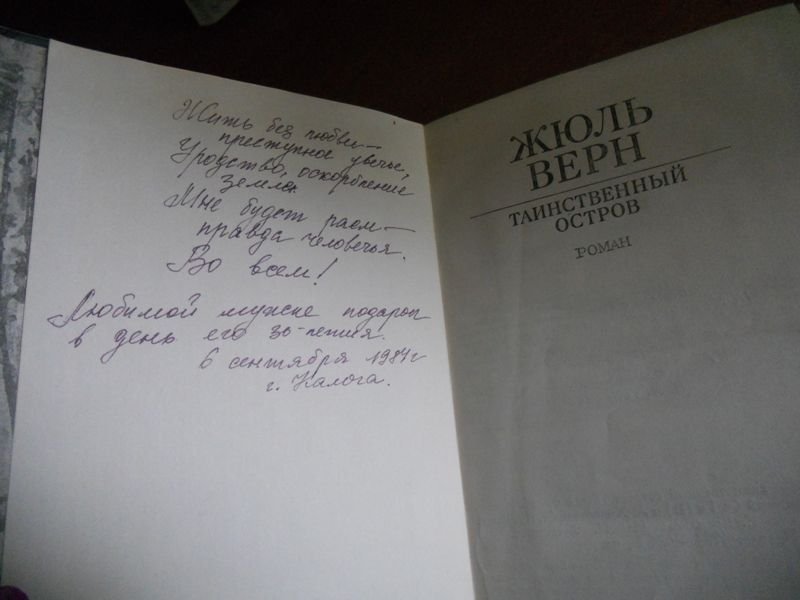 Жить без любви —
преступное увечье,
Уродство, оскорбление
Земле.
Мне будет раем —
правда человечья.
Во всем!
Любимой мужне подарок
в день его 30-летия.
6 сентября 1987г
г. Калуга.
ЖЮЛЬ
ВЕРН
ТАИНСТВЕННЫЙ
ОСТРОВ
РОМАН